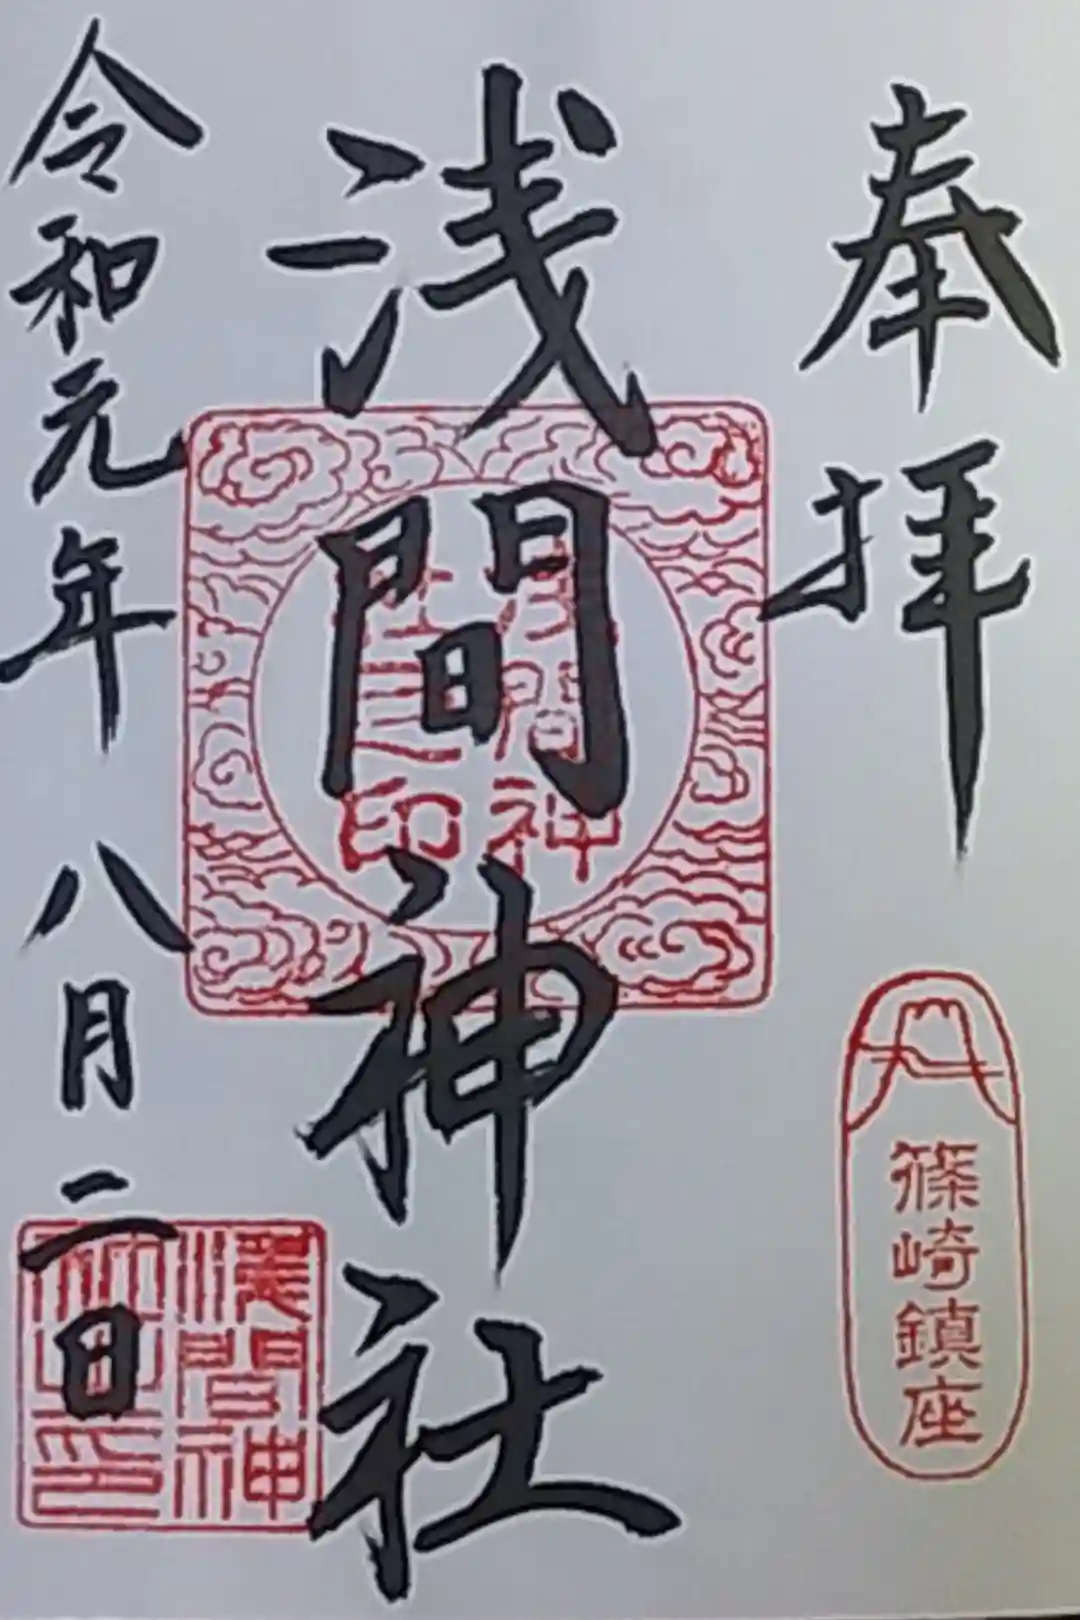 奉拝
篠崎鎮座
浅間神社
浅間神
社之印
令和元年八月二日
浅間神
社之印